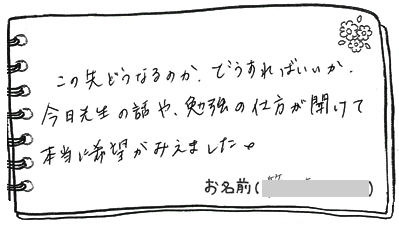 この先どうなるのか、どうすればいいか、
今日先生の話や、勉強の仕方が聞けて
本当に希望がみえました。
お名前( )